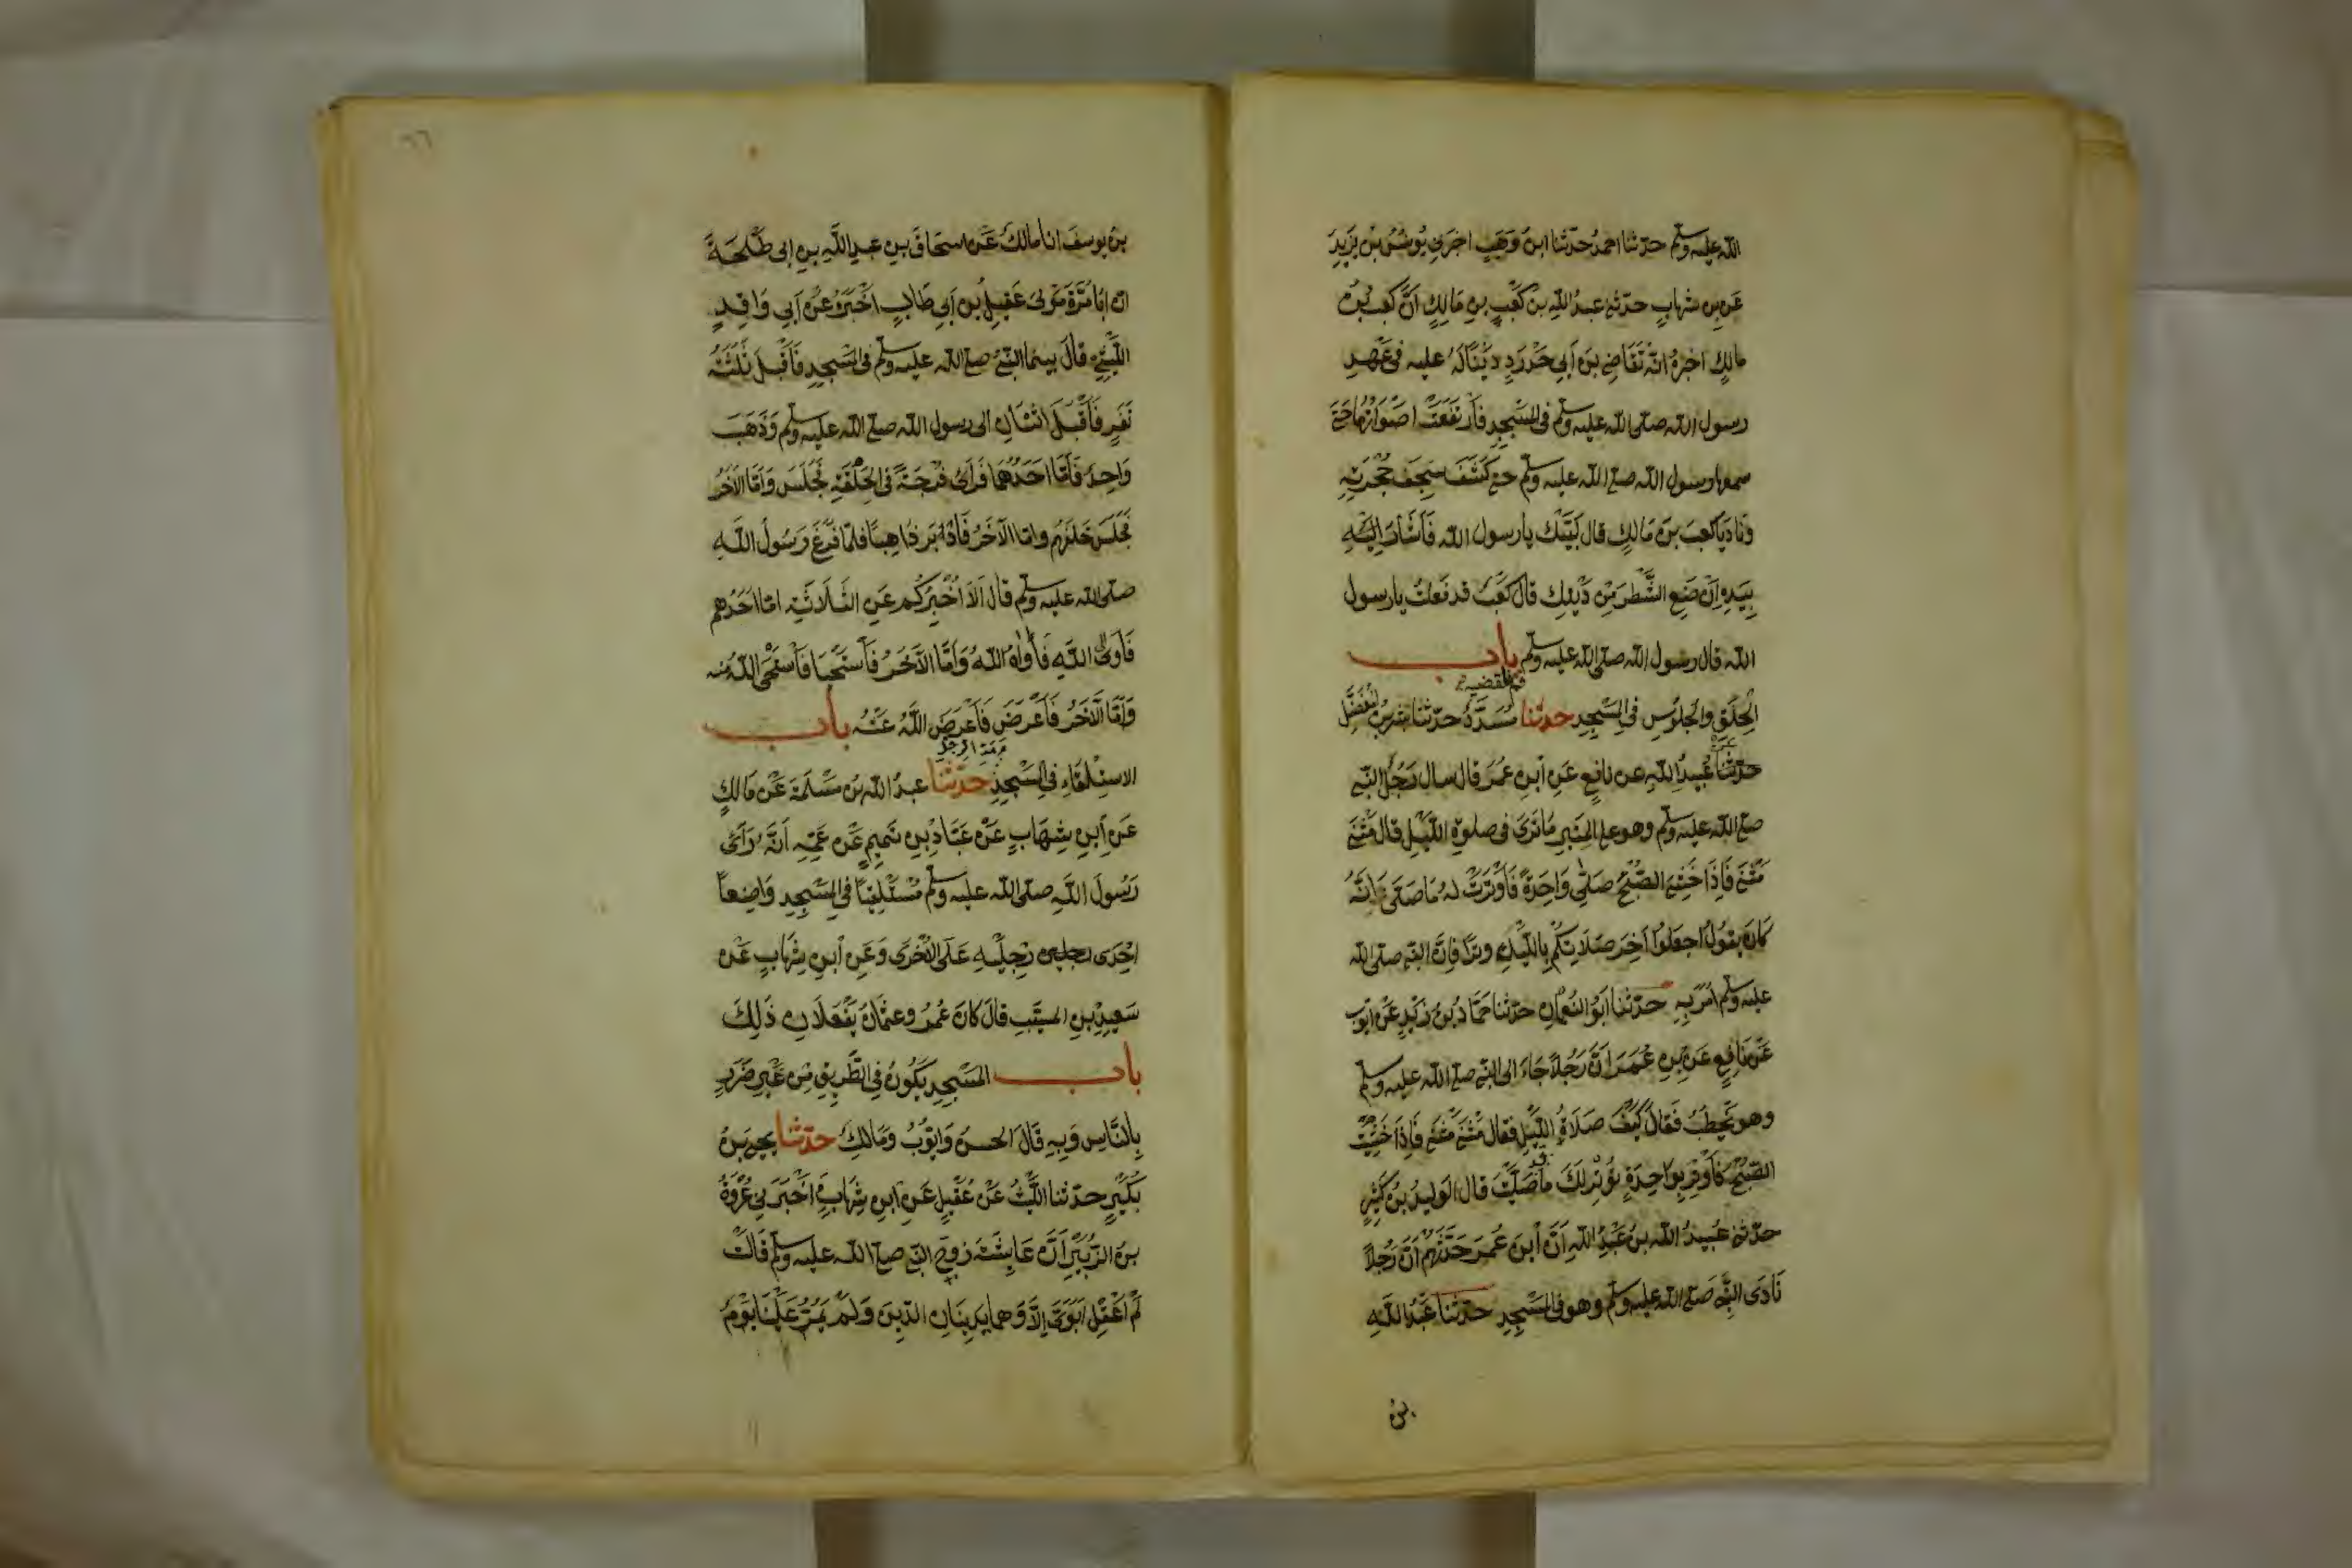 الله عليه وسلم حدثنا احمد حدثنا ابن وهب اخبرني يونس بن يزيد
عن بن شهاب حدثني عبد الله بن كعب بن مالك ان كعب بن
مالك اخبره انه تقاضي بن ابي حدرد دينا له عليه في عهد
رسول الله صلى الله عليه وسلم في المسجد فارتفعت اصواتهما حتى
سمعها رسول الله صلى الله عليه وسلم حتى كشف سجف حجرته
ونادى يا كعب بن مالك قال لبيك يا رسول الله فاشار اليه
بيده ان ضع الشطر من دينك قال كعب قد فعلت يا رسول
الله قال رسول الله صلى الله عليه وسلم باب
قم فاقضيه
الحلق والجلوس في المسجد حدثنا مسدد حدثنا بشر بن المفضل
حدثنا عبيد الله عن نافع عن ابن عمر قال سال رجل النبي
صلى الله عليه وسلم وهو على المنبر ما ترى في صلوة الليل قال مثنى
مثنى فاذا خشي الصبح صلى واحدة فاوترت له ما صلى وانه
كان يقول اجعلوا اخر صلاتكم بالليل وترا فان النبي صلى الله
عليه وسلم امر به حدثنا ابو النعمان حدثنا حماد بن زيد عن ايوب
عن نافع عن بن عمر ان رجلا جاء الى النبي صلى الله عليه وسلم
وهو يخطب فقال كيف صلاة الليل فقال مثنى مثنى فاذا خشيت
الصبح فاوتر بواحدة توتر لك ما صليت قال الوليد بن كثير
حدثني عبيد الله بن عبد الله ان ابن عمر حدثهم ان رجلا
نادى النبي صلى الله عليه وسلم وهو في المسجد حدثنا عبد الله
بن
٦٦
بن يوسف انا مالك عن اسحاق بن عبد الله بن ابي طلحة
ان ابا مرة مولى عقيل بن ابي طالب اخبره عن ابي واقد
الليثي قال بينما النبي صلى الله عليه وسلم في المسجد فاقبل ثلثة
نفر فاقبل اثنان الى رسول الله صلى الله عليه وسلم وذهب
واحد فاما احدهما فراى فرجة في الحلقة فجلس واما الاخر
فجلس خلفهم واما الاخر فادبر ذاهبا فلما فرغ رسول الله
صلى الله عليه وسلم قال الا اخبركم عن الثلاثة اما احدهم
فاوى الى الله فاواه الله واما الاخر فاستحيا فاستحى الله منه
واما الاخر فاعرض فاعرض الله عنه باب
الاستلقاء في المسجد حدثنا عبد الله بن مسلمة عن مالك
عن ابن شهاب عن عباد بن تميم عن عمه انه راى
رسول الله صلى الله عليه وسلم مستلقيا في المسجد واضعا
احدى رجليه على الاخرى وعن ابن شهاب عن
سعيد بن المسيب قال كان عمر وعثمان يفعلان ذلك
باب المسجد يكون في الطريق من غير ضرر
بالناس وبه قال الحسن وايوب ومالك حدثنا يحيى بن
بكير حدثنا الليث عن عقيل عن ابن شهاب اخبرني عروة
بن الزبير ان عايشة زوج النبي صلى الله عليه وسلم قالت
لم اعقل ابوي الا وهما يدينان الدين ولم يمر علينا يوم